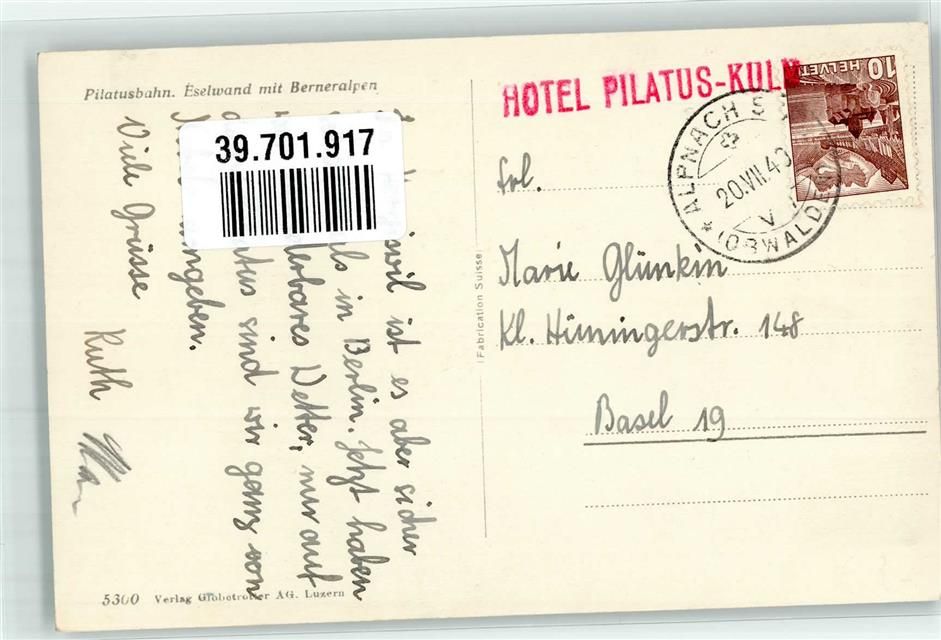 Pilatusbahn. Eselwand mit Berneralpen
HOTEL PILATUS-KULM
10 HELVETIA
ALPNACH
20.VII.43
V
(OBWALDEN)
39.701.917
ist es aber sicher
als in Berlin. Jetzt haben
Wetter, nur auf
sind wir ganz von
umgeben.
Viele Grüsse
Ruth
Frl.
Marie Glünkin
Kl. Hüningerstr. 148
Basel 19
Fabrication Suisse
5300 Verlag Globetrotter AG. Luzern